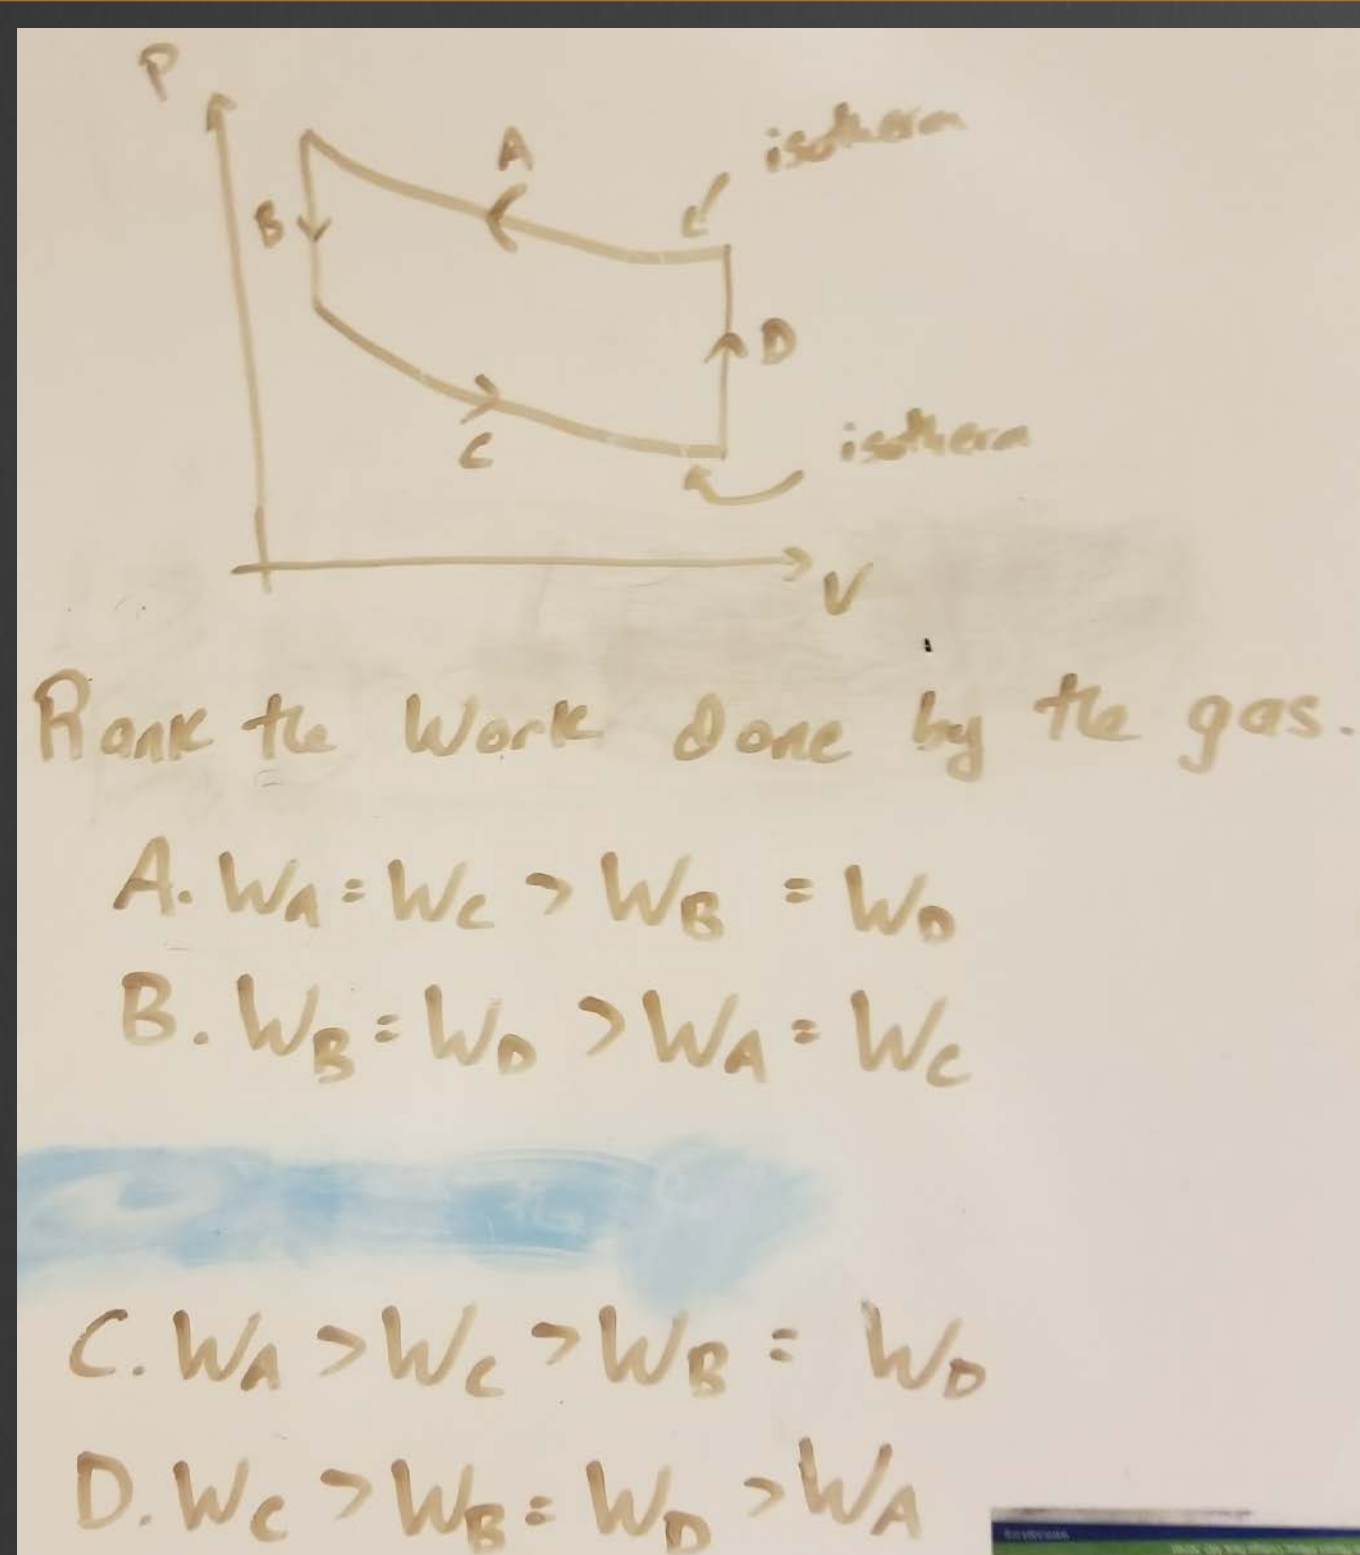 P
A
isotherm
B
D
C
isotherm
V
Rank the Work done by the gas.
A. WA = WC > WB = WD
B. WB = WD > WA = WC
C. WA > WC > WB = WD
D. WC > WB = WD > WA